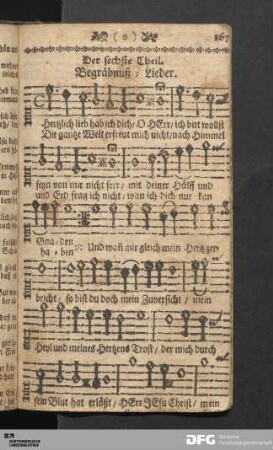 ( 0 ) 167
Der sechste Theil.
Begräbnuß-Lieder.
Hertzlich lieb hab ich dich/ O HErr/ ich bitt wollst
Die gantze Welt erfreut mich nicht/ nach Himmel
seyn von mir nicht ferr/ mit deiner Hülff und
und Erd frag ich nicht/ wan ich dich nur kan
Gna-den :||: Und wañ mir gleich mein Hertz zer-
ha-ben
bricht/ so bist du doch mein Zuversicht/ mein
Heyl und meines Hertzens Trost/ der mich durch
sein Blut hat erlößt/ HErr JEsu Christ/ mein
DFG
Deutsche
Forschungsgemeinschaft